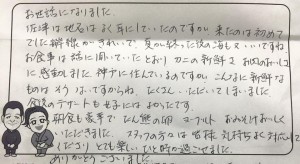 お世話になりました。
佐渡は地名はよく耳にしていたのですが 来たのは初めて
でした 海がきれいで、夏が終った後の海も、いいですね
お食事は話に聞いていたとおり カニの新鮮さ お肉のおいしさ
に感動しました 神戸に住んでいるのですが、こんなに新鮮な
ものは そう ないですからね、たくさん いただいてしまいました
食後のデザートも とてもよかったです。
朝食も豪華で ヨーグルト おみそ おいしく
いただきました、スタッフの方々は皆様 気持ちよく対応して
くださり とても楽しいひと時が過ごせました
ありがとうございました